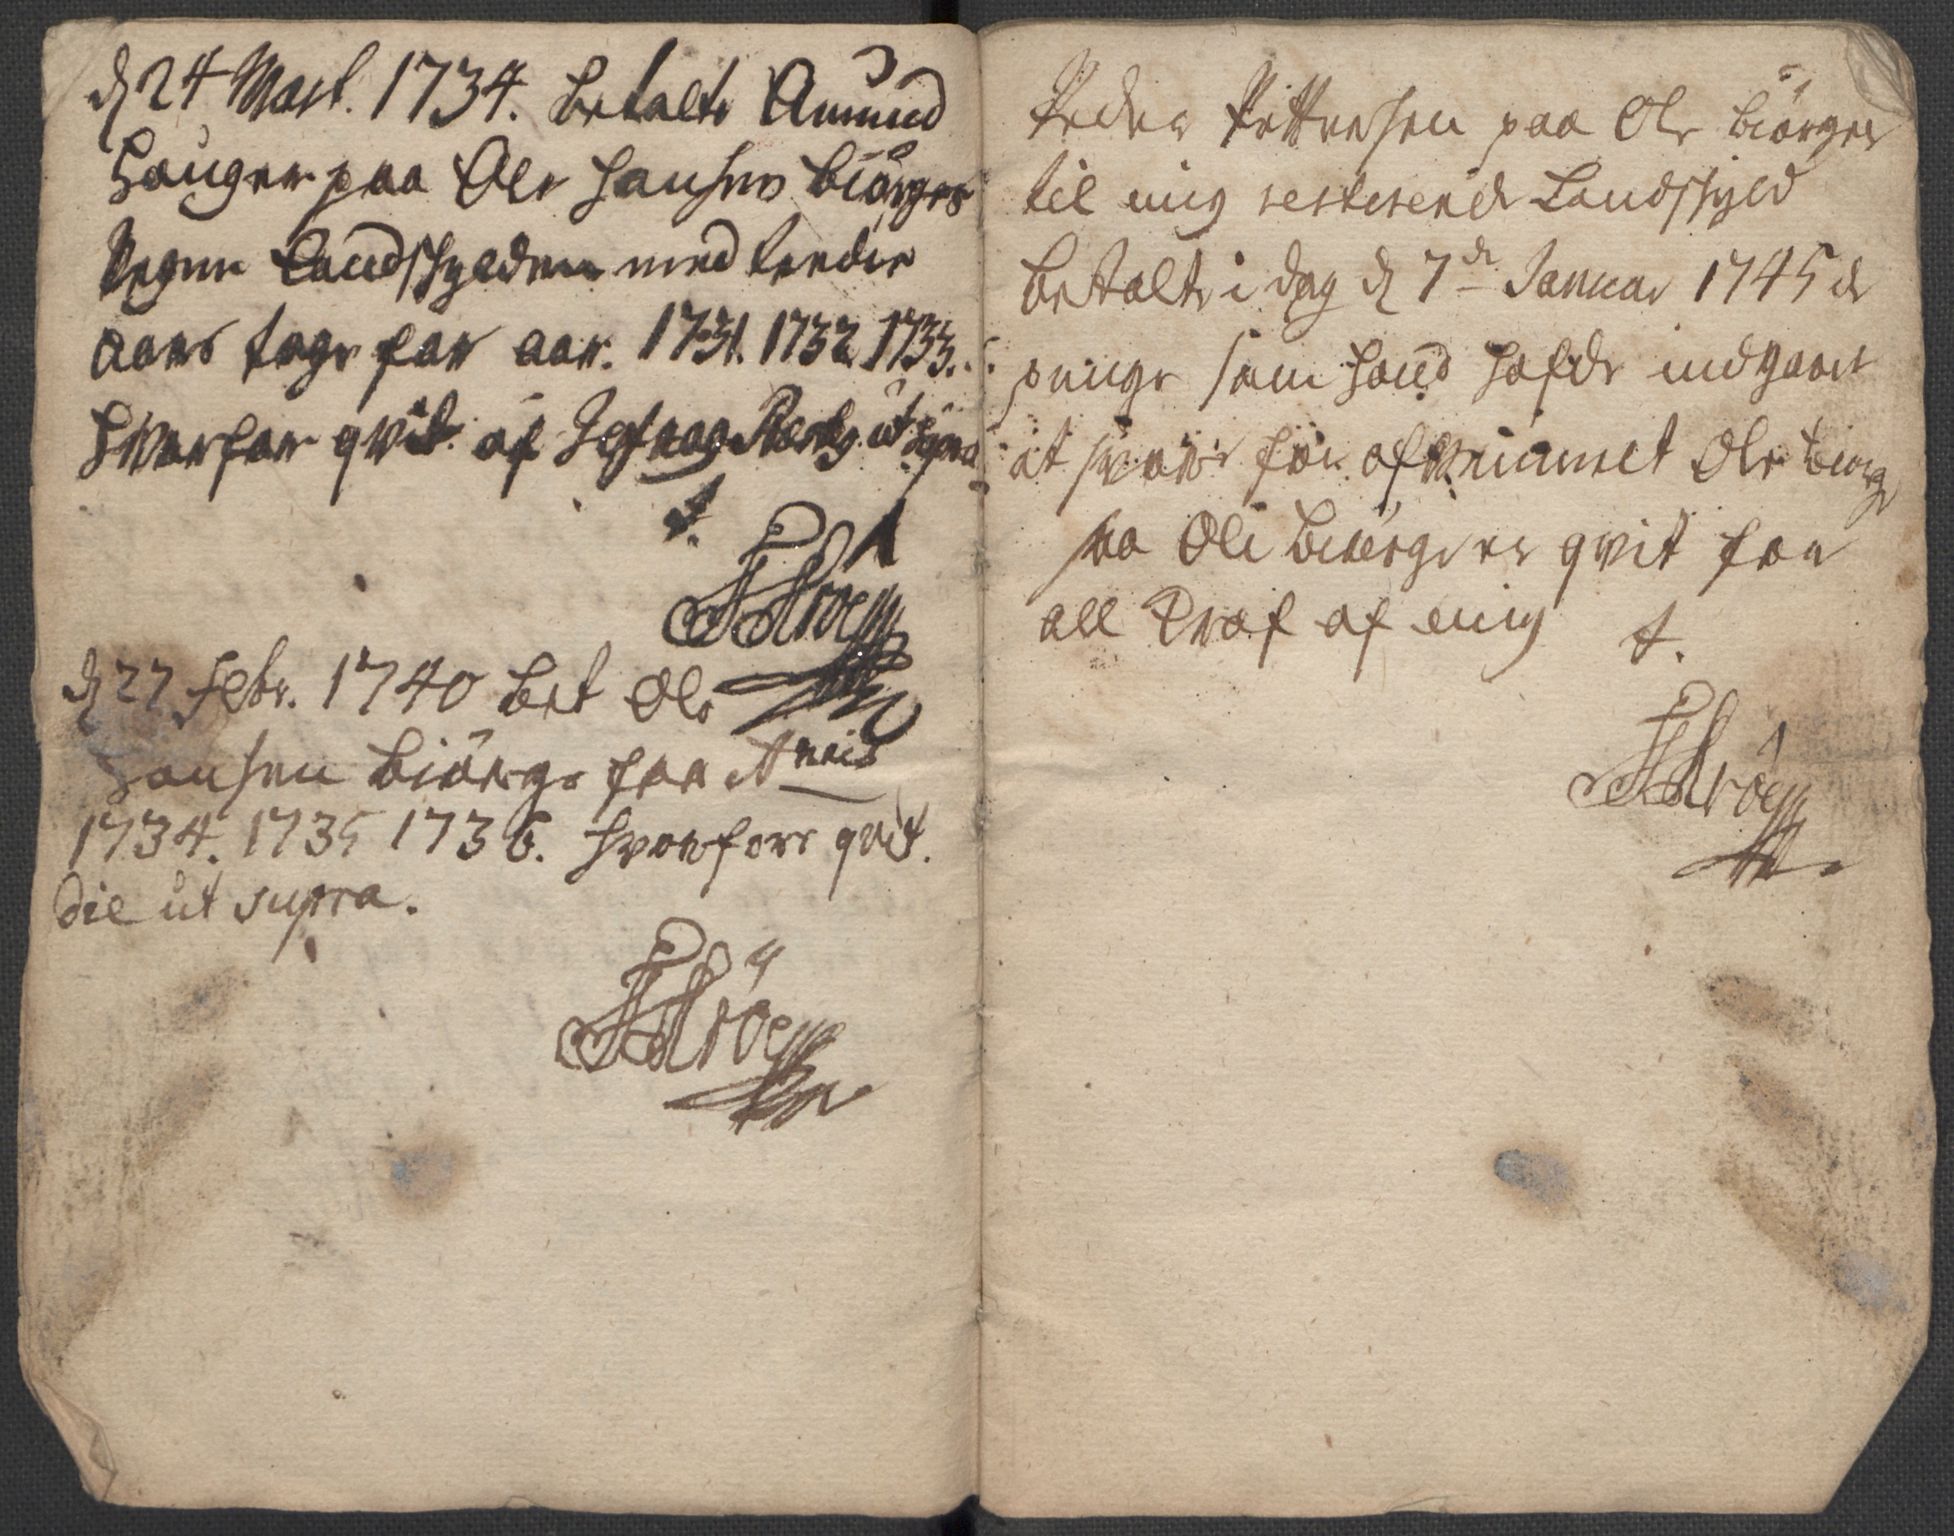 d 24 Mart. 1734. betalte Amund
Hougen paa Ole Hansens biörges
Vegne Landskylden med tredie
aars tage for aar. 1731. 1732 1733.
Hvorfor qvit af ut supra
t.
d 27 Febr. 1740 bet Ole
Hansen biörge for Annis
1734. 1735 1736. Hvorfore qvit.
die ut supra.
Peder Pettersen paa Ole biörges
til mig resterende Landskyld
betalte i dag d 7de Januar 1745 de
penge som hand hafde indgaaet
at svare for Ole biörge
saa Ole biörge er qvit for
all Kraf af mig t.